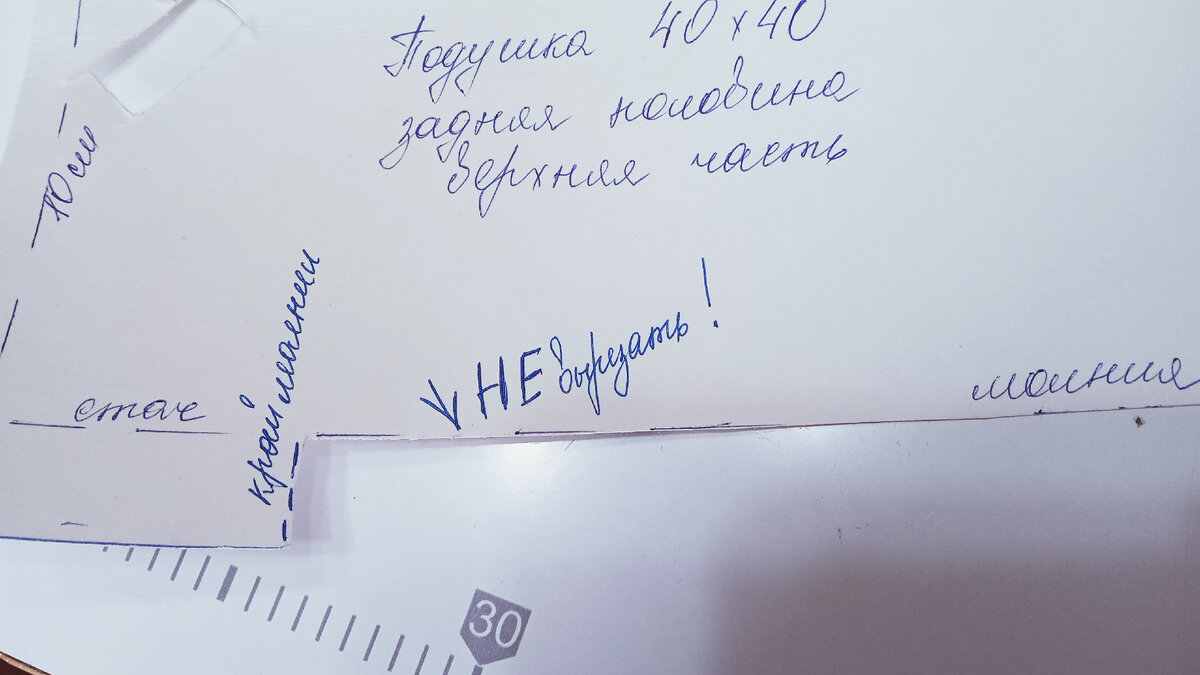 Подушка 40 х 40
задняя половина
верхняя часть
10 см
край молнии
↓ НЕ вырезать!
стач
молния
30